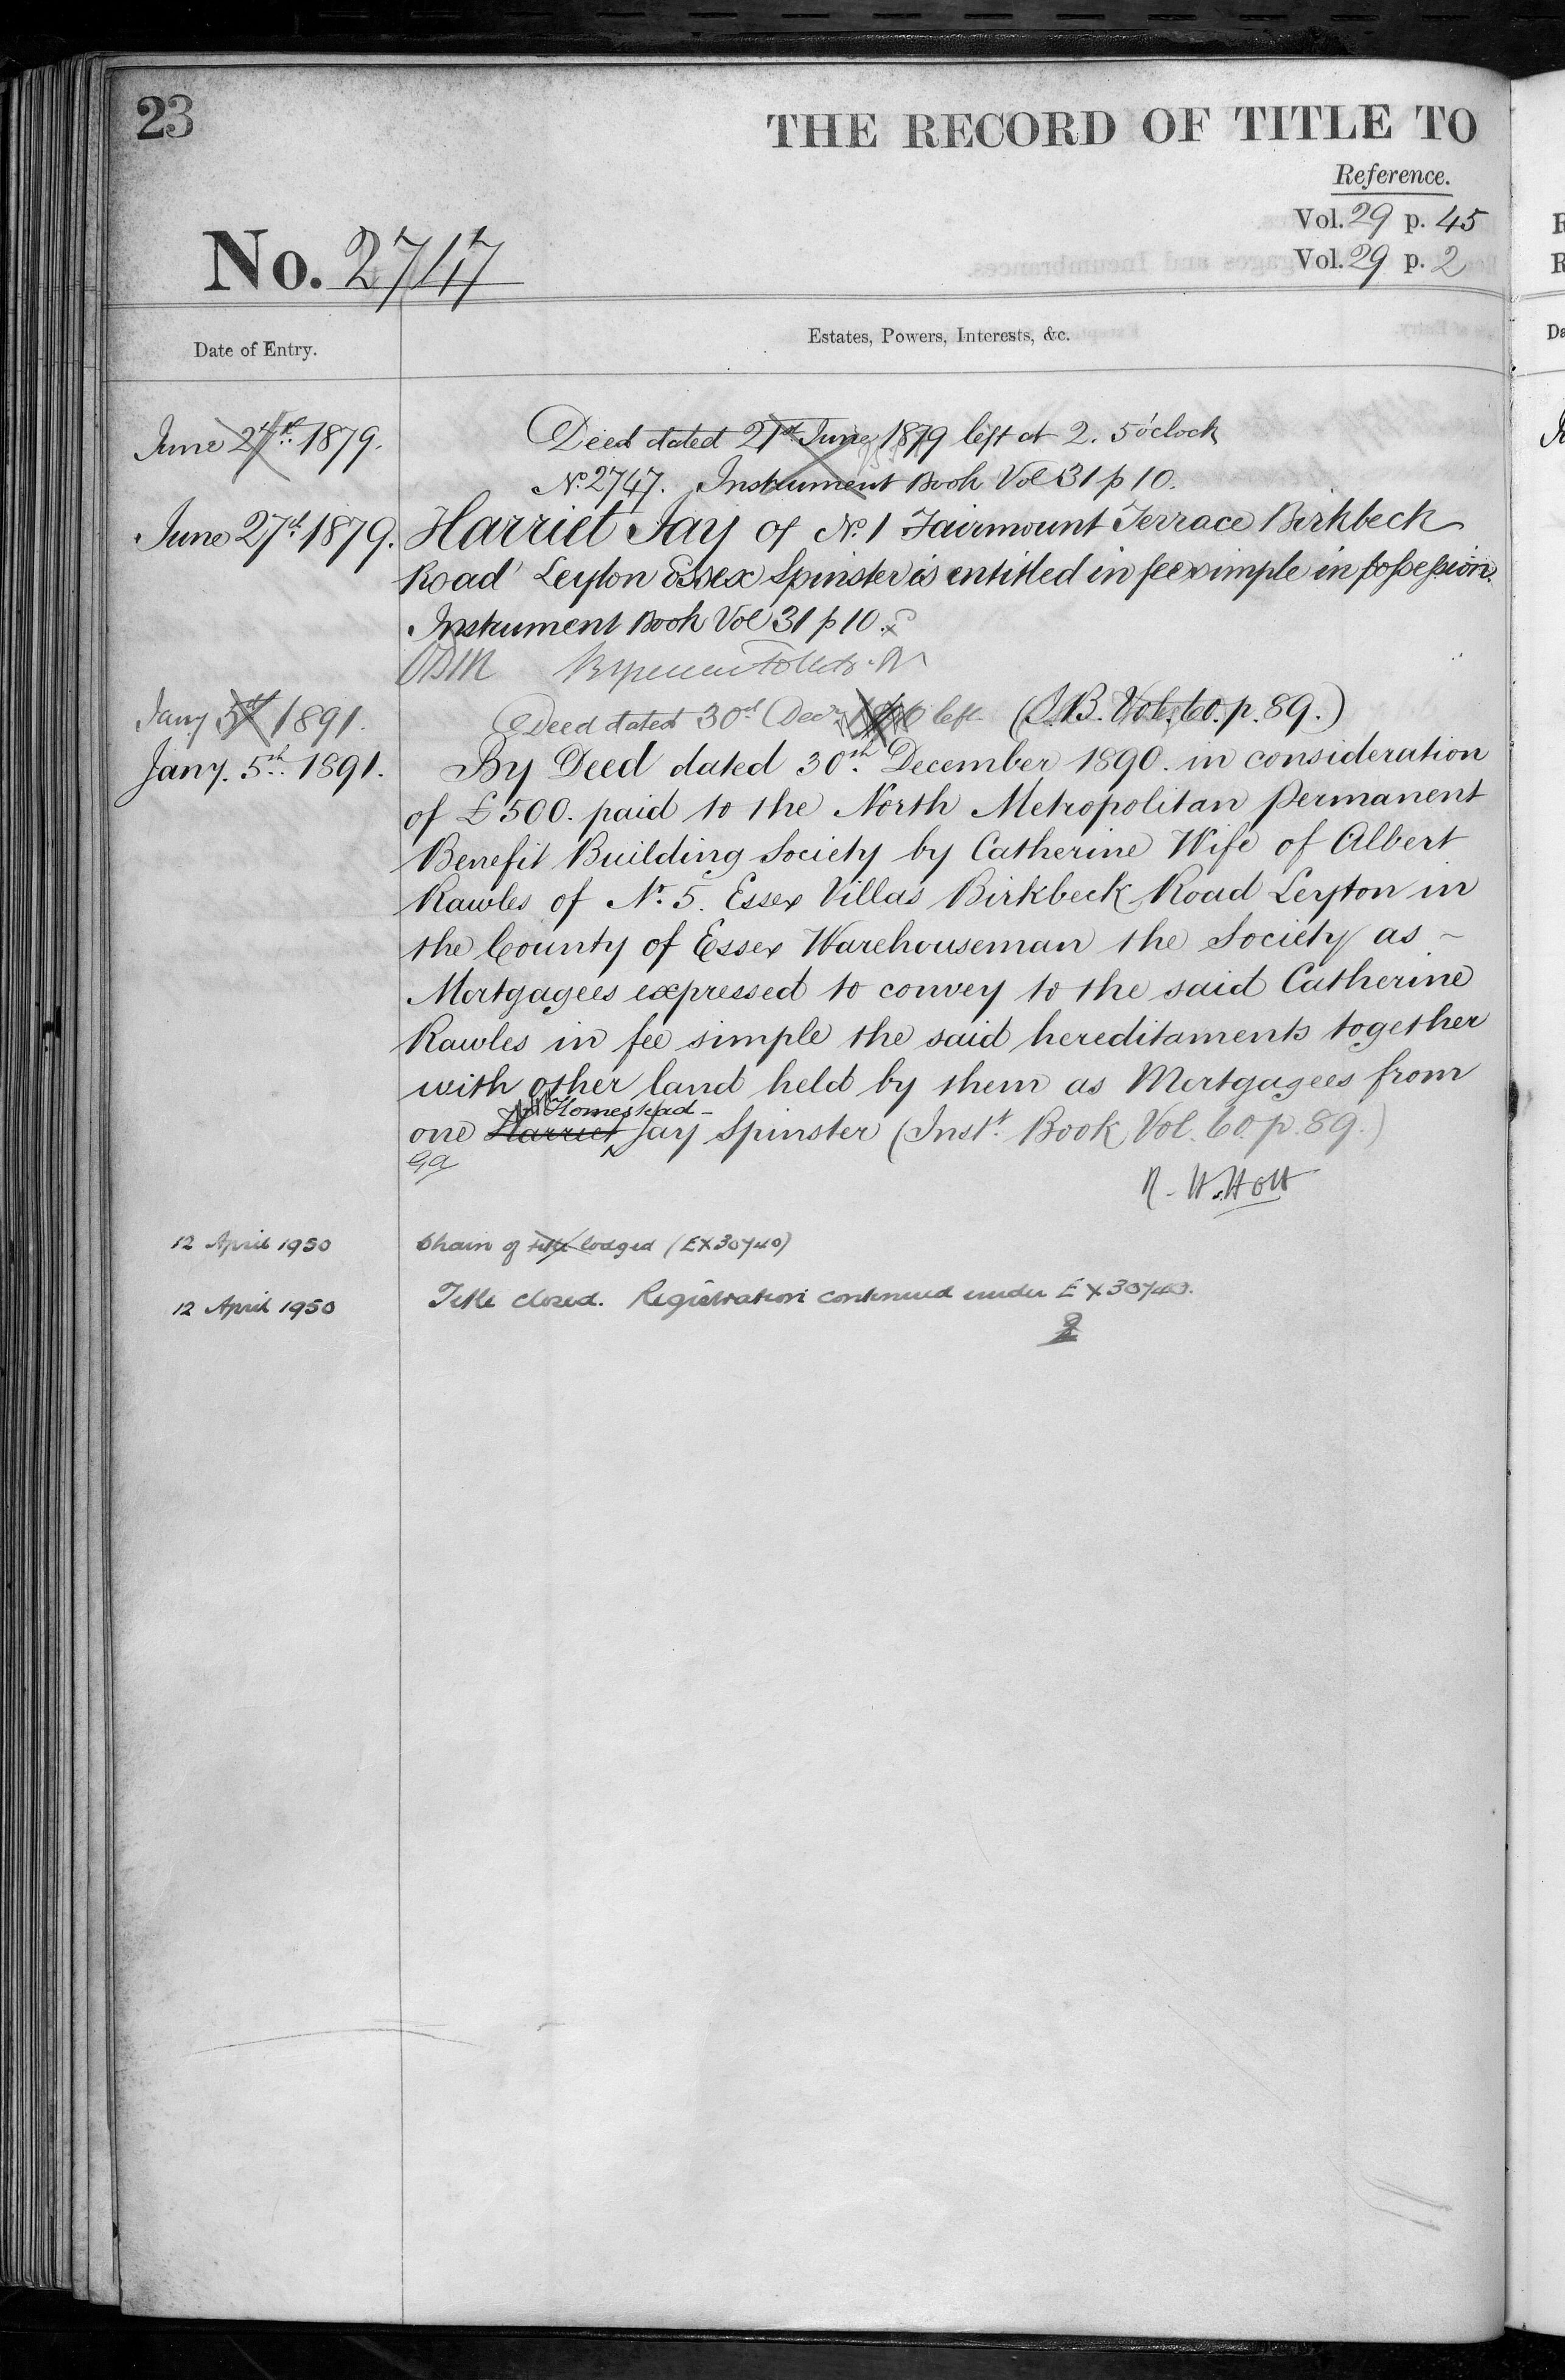 23
THE RECORD OF TITLE TO
Reference.
Vol. 29 p. 45
Vol. 29 p. 2
No. 2747
Date of Entry.
Estates, Powers, Interests, &c.
June 27th 1879. Deed dated 21st June 1879 left at 2. 5 o'clock
No. 2747. Instrument Book Vol 31 p 10.
June 27th 1879. Harriet Jay of No. 1 Fairmount Terrace Birkbeck
Road Leyton Essex Spinster is entitled in fee simple in possession.
Instrument Book Vol 31 p 10.
Jany 5th 1891. Deed dated 30th Decr. left (I.B. Vol. 60. p. 89.)
Jany. 5th 1891. By Deed dated 30th December 1890. in consideration
of £500. paid to the North Metropolitan Permanent
Benefit Building Society by Catherine Wife of Albert
Rawles of No. 5. Essex Villas Birkbeck Road Leyton in
the County of Essex Warehouseman the Society as ~
Mortgagees expressed to convey to the said Catherine
Rawles in fee simple the said hereditaments together
with other land held by them as Mortgagees from
Homestead -
one Harriet Jay Spinster (Instt. Book Vol. 60. p. 89.)
R. H. Holt
12 April 1950 Chain of title lodged (EX30740)
12 April 1950 Title closed. Registration continued under EX30740.